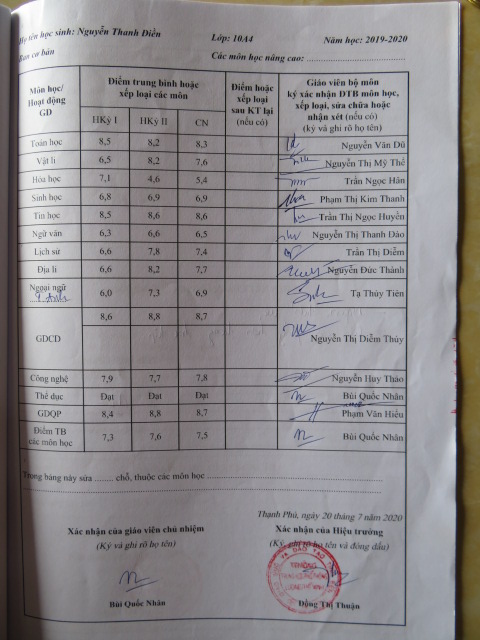 Họ tên học sinh: Nguyễn Thanh Điền Lớp: 10A4 Năm học: 2019-2020
Ban cơ bản Các môn học nâng cao:
Môn học/ Hoạt động GD
Điểm trung bình hoặc xếp loại các môn
Điểm hoặc xếp loại sau KT lại (nếu có)
Giáo viên bộ môn ký xác nhận ĐTB môn học, xếp loại, sửa chữa hoặc nhận xét (nếu có) (ký và ghi rõ họ tên)
HKỳ I HKỳ II CN
Toán học 8,5 8,2 8,3 Nguyễn Văn Dũ
Vật lí 6,5 8,2 7,6 Nguyễn Thị Mỹ Thể
Hóa học 7,1 4,6 5,4 Trần Ngọc Hân
Sinh học 6,8 6,9 6,9 Phạm Thị Kim Thanh
Tin học 8,5 8,6 8,6 Trần Thị Ngọc Huyền
Ngữ văn 6,3 6,6 6,5 Nguyễn Thị Thanh Đào
Lịch sử 6,6 7,8 7,4 Trần Thị Diễm
Địa lí 6,6 8,2 7,7 Nguyễn Đức Thành
Ngoại ngữ T.Anh 6,0 7,3 6,9 Tạ Thủy Tiên
GDCD 8,6 8,8 8,7 Nguyễn Thị Diễm Thúy
Công nghệ 7,9 7,7 7,8 Nguyễn Huy Thảo
Thể dục Đạt Đạt Đạt Bùi Quốc Nhân
GDQP 8,4 8,8 8,7 Phạm Văn Hiếu
Điểm TB các môn học 7,3 7,6 7,5 Bùi Quốc Nhân
Trong bảng này sửa ......... chỗ, thuộc các môn học
Thạnh Phú, ngày 20 tháng 7 năm 2020
Xác nhận của giáo viên chủ nhiệm Xác nhận của Hiệu trưởng
(Ký và ghi rõ họ tên) (Ký, ghi rõ họ tên và đóng dấu)
Bùi Quốc Nhân Đặng Thị Thuận